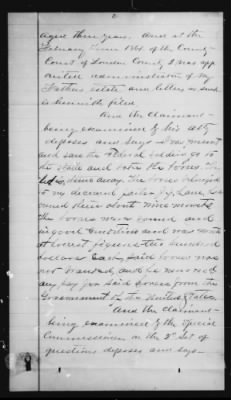 2
aged three years. And at the
February Term 1864 of the County
Court of Loudon County I was app
ointed administrator of my
Fathers estate and letters as such
is herewith filed
And the Claimant
being examined by his atty
deposes and says I was present
and saw the Federal Soldiers go to
the stable and take the horses
them away. The horses belonged
to my deceased father Lane, he
owned them about nine months
the horses were sound and
in good condition and was worth
at lowest figures two hundred
dollars Each, Said horses was
not branded, and he never got
any pay for said horses from the
Government of the United States
And the claimant
being examined by the Special
Commissioner on the 2nd Set of
questions deposes and says